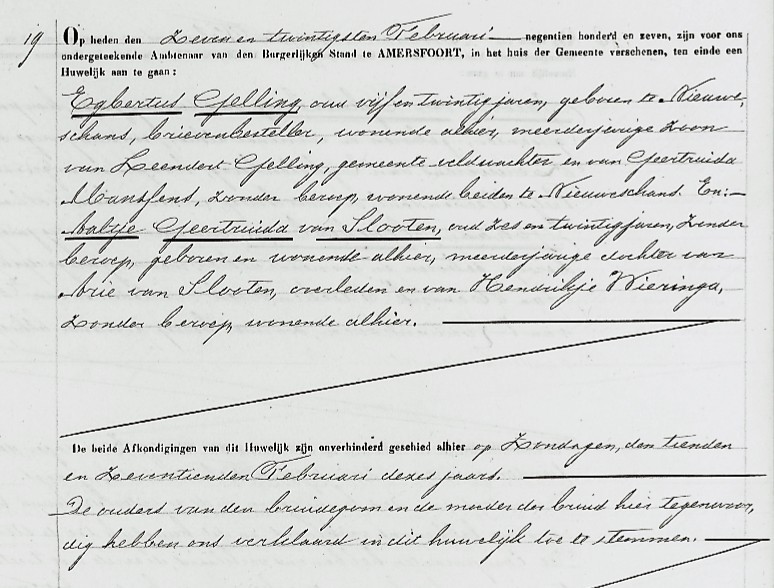 19 Op heden den Zeven en twintigsten Februari negentien honderd en zeven, zijn voor ons
ondergeteekende Ambtenaar van den Burgerlijken Stand te AMERSFOORT, in het huis der Gemeente verschenen, ten einde een
Huwelijk aan te gaan:
Egbertus Gelling, oud vijf en twintig jaren, geboren te Nieuwe-
schans, brievenbesteller, wonende alhier, meerderjarige zoon
van Leendert Gelling, gemeente veldwachter en van Geertruida
Mansfens, zonder beroep, wonende beiden te Nieuweschans. En:
Aaltje Geertruida van Slooten, oud zes en twintig jaren, zonder
beroep, geboren en wonende alhier, meerderjarige dochter van
Arie van Slooten, overleden en van Hendrikje Wieringa,
zonder beroep, wonende alhier.
De beide Afkondigingen van dit Huwelijk zijn onverhinderd geschied alhier op Zondagen, den tienden
en zeventienden Februari dezes jaars.
De ouders van den bruidegom en de moeder der bruid hier tegenwoor-
dig hebben ons verklaard in dit huwelijk toe te stemmen.